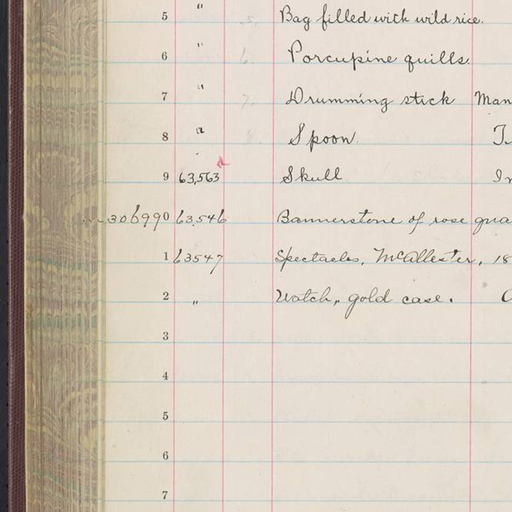 5 " Bag filled with wild rice.
6 " Porcupine quills
7 " Drumming stick Man
8 " Spoon. T.
9 63,563 Skull In
306990 63,546 Bannerstone of rose qua
1 63547 Spectacles, McAllester, 18
2 " Watch, gold case.
3
4
5
6
7